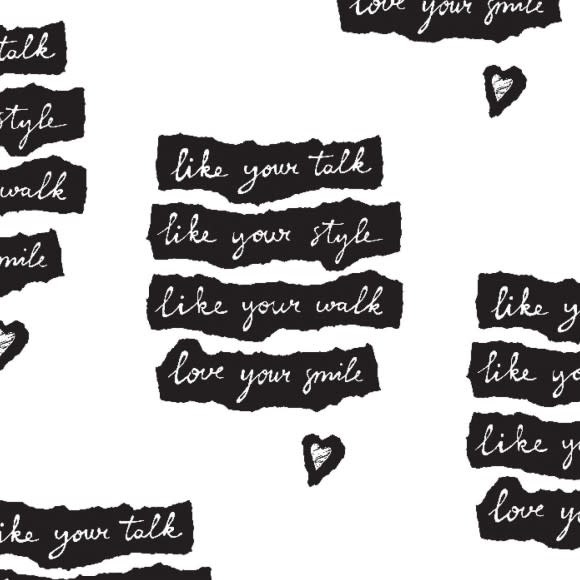 love your smile
talk
style
walk
mile
like your talk
like your style
like your walk
love your smile
like y
like yo
like y
love yo
ike your talk